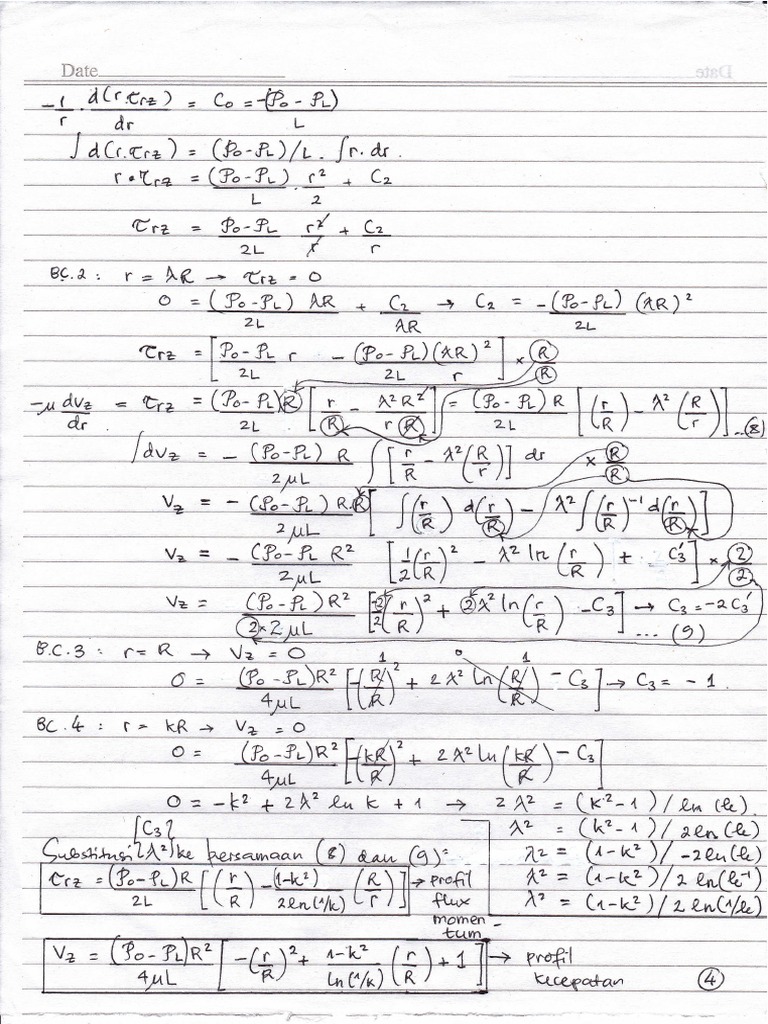 Date
-1/r · d(r.τrz)/dr = C0 = -(P0 - PL)/L
∫ d(r.τrz) = (P0-PL)/L . ∫ r. dr.
r • τrz = (P0-PL)/L . r²/2 + C2
τrz = P0-PL/2L r²/r + C2/r
B.C.2 : r = λR → τrz = 0
0 = (P0-PL) λR/2L + C2/λR → C2 = -(P0-PL)/2L (λR)²
τrz = [P0-PL/2L r - (P0-PL)(λR)²/2L r] × R/R
-μ dvz/dr = τrz = (P0-PL)R/2L [r/R - λ²R²/r R] = (P0-PL) R/2L [(r/R) - λ²(R/r)] ...(8)
∫dvz = - (P0-PL) R/2μL ∫[r/R - λ²(R/r)] dr × R/R
Vz = - (P0-PL) R.R/2μL [∫(r/R) d(r/R) - λ²∫(r/R)⁻¹ d(r/R)]
Vz = - (P0-PL R²/2μL [1/2(r/R)² - λ² ln(r/R) + C3'] × 2/2
Vz = (P0-PL)R²/2×2μL [-2/2(r/R)² + 2λ² ln(r/R) - C3] → C3 = -2C3' ...(9)
B.C.3 : r = R → Vz = 0
0 = (P0-PL)R²/4μL [-(R/R)² 1 + 2λ² ln(R/R) 1 0 - C3] → C3 = -1.
BC.4 : r = kR → Vz = 0
0 = (P0-PL)R²/4μL [-(kR/R)² + 2λ² ln(kR/R) - C3]
0 = -k² + 2λ² ln k + 1 → 2λ² = (k²-1)/ln(k).
λ² = (k²-1)/2ln(k)
λ² = (1-k²)/-2ln(k)
λ² = (1-k²)/2 ln(k⁻¹)
λ² = (1-k²)/2 ln(1/k)
Substitusi {C3 λ²} ke persamaan (8) dan (9):
τrz = (P0-PL)R/2L [(r/R) - (1-k²)/2ln(1/k) (R/r)] → profil
flux
momen-
tum
Vz = (P0-PL)R²/4μL [-(r/R)² + 1-k²/ln(1/k) (r/R) + 1] → profil
kecepatan
4